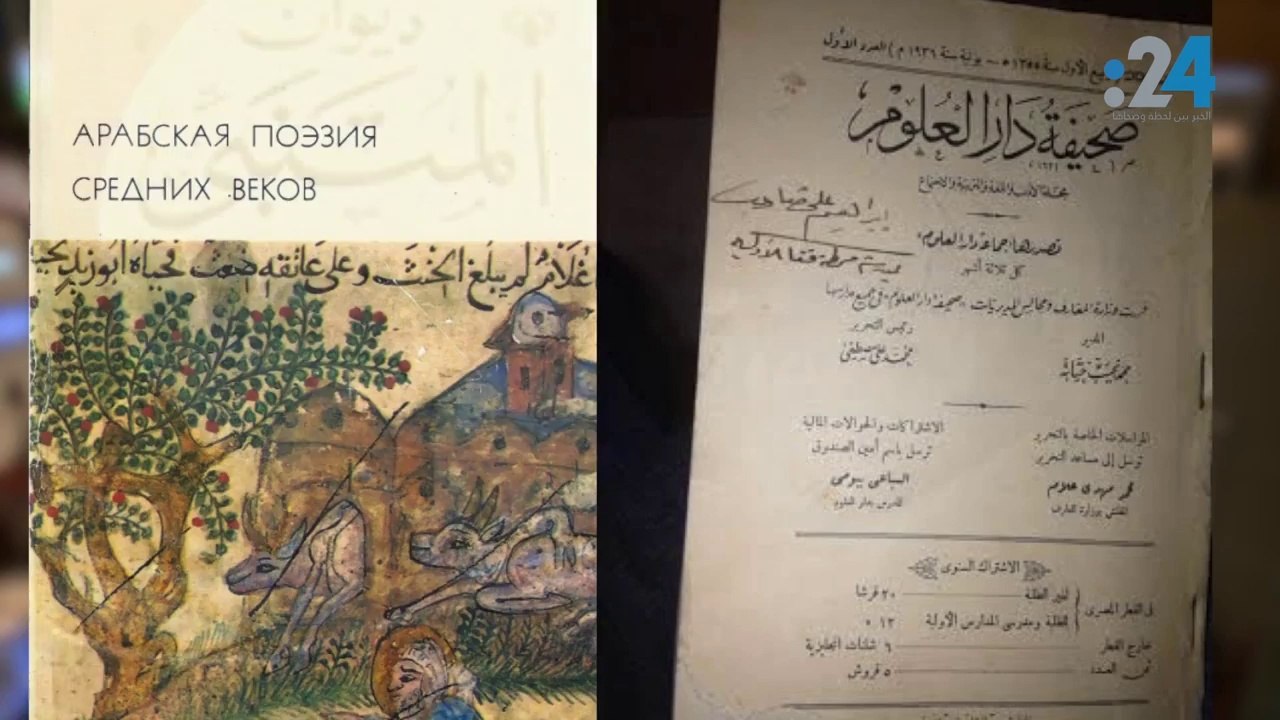 ديوان
المتنبي
АРАБСКАЯ ПОЭЗИЯ
СРЕДНИХ ВЕКОВ
غلام لم يبلغ الحنث وعلى عاتقه ضغث فحياه ابو زيد
:24
الخبر بين لحظة وضحاها
ربيع الأول سنة ١٣٥٥ ه — يونية سنة ١٩٣٦ م ) العدد الأول
صَحيفَةُ دَارُ العُلومِ
مجلة الأدب واللغة والتربية والاجتماع
تصدرها جماعة دار العلوم
كل ثلاثة أشهر
قررت وزارة المعارف ومجالس المديريات «صحيفة دار العلوم» فى جميع مدارسها
المدير
رئيس التحرير
محمد نجيب حتاتة
محمد على مصطفى
المراسلات الخاصة بالتحرير
ترسل إلى مساعد التحرير
محمد مهدى علام
المفتش بوزارة المعارف
الاشتراكات والحوالات المالية
ترسل باسم أمين الصندوق
السباعى بيومى
المدرس بدار العلوم
الاشتراك السنوى
فى القطر المصرى
لغير الطلبة ٢٠ قرشا
للطلبة ومدرسى المدارس الأولية ١٢ »
خارج القطر ٦ شلنات انجليزية
ثمن العدد ٥ قروش